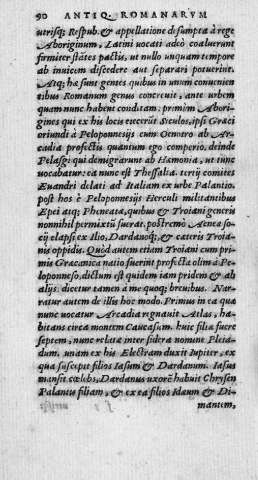 90 ANTIQ. ROMANARVM
utrisq; Respub. & appellatione desumpta à rege
Aboriginum, Latini vocati adeo coaluerunt
firmiter states pactis, ut nullo unquam tempore
ab inuicem discedere aut separari potuerint.
Atq; ha sunt gentes quibus in unum conuenien
tibus Romanum genus concreuit, ante urbem
quam nunc habent conditam: primùm Abori-
gines qui ex his locis eiecerūt Siculos, ipsi Graci
oriundi à Peloponneso, cum Oenotro ab Ar-
cadia profectis quantum ego comperio, deinde
Pelasgi qui demigrarunt ab Hamonia, ut tunc
uocabatur: ea nunc est Thessalia. tertij comites
Euandri delati ad Italiam ex urbe Palantio.
post hos è Peloponneso Herculi militantibus
Epei atq; Pheneata, quibus & Troiani generis
nonnihil permixtū fuerat. postremò Aenea so-
cij elapsi ex Ilio, Dardanoq; & cateris Troia-
nis oppidis. Quòd autem etiam Troiani cum pri-
mis Gracanica natio fuerint profecta olim à Pe-
loponneso, dictum est quidem iam pridem & ab
alijs: dicetur tamen à me quoq; breuibus. Nar-
ratur autem de illis hoc modo. Primus in ea qua
nunc uocatur Arcadia regnauit Atlas, ha-
bitans circa montem Caucasum. huic filia fuere
septem, nunc relata inter sidera nomine Pleia-
dum. unam ex his Electram duxit Iupiter, ex
qua suscepit filios Iasum & Dardanum. Iasus
mansit cœlebs, Dardanus uxorē habuit Chrysen
Palantis filiam, & ex ea filios Idaum & Di-
mantem,